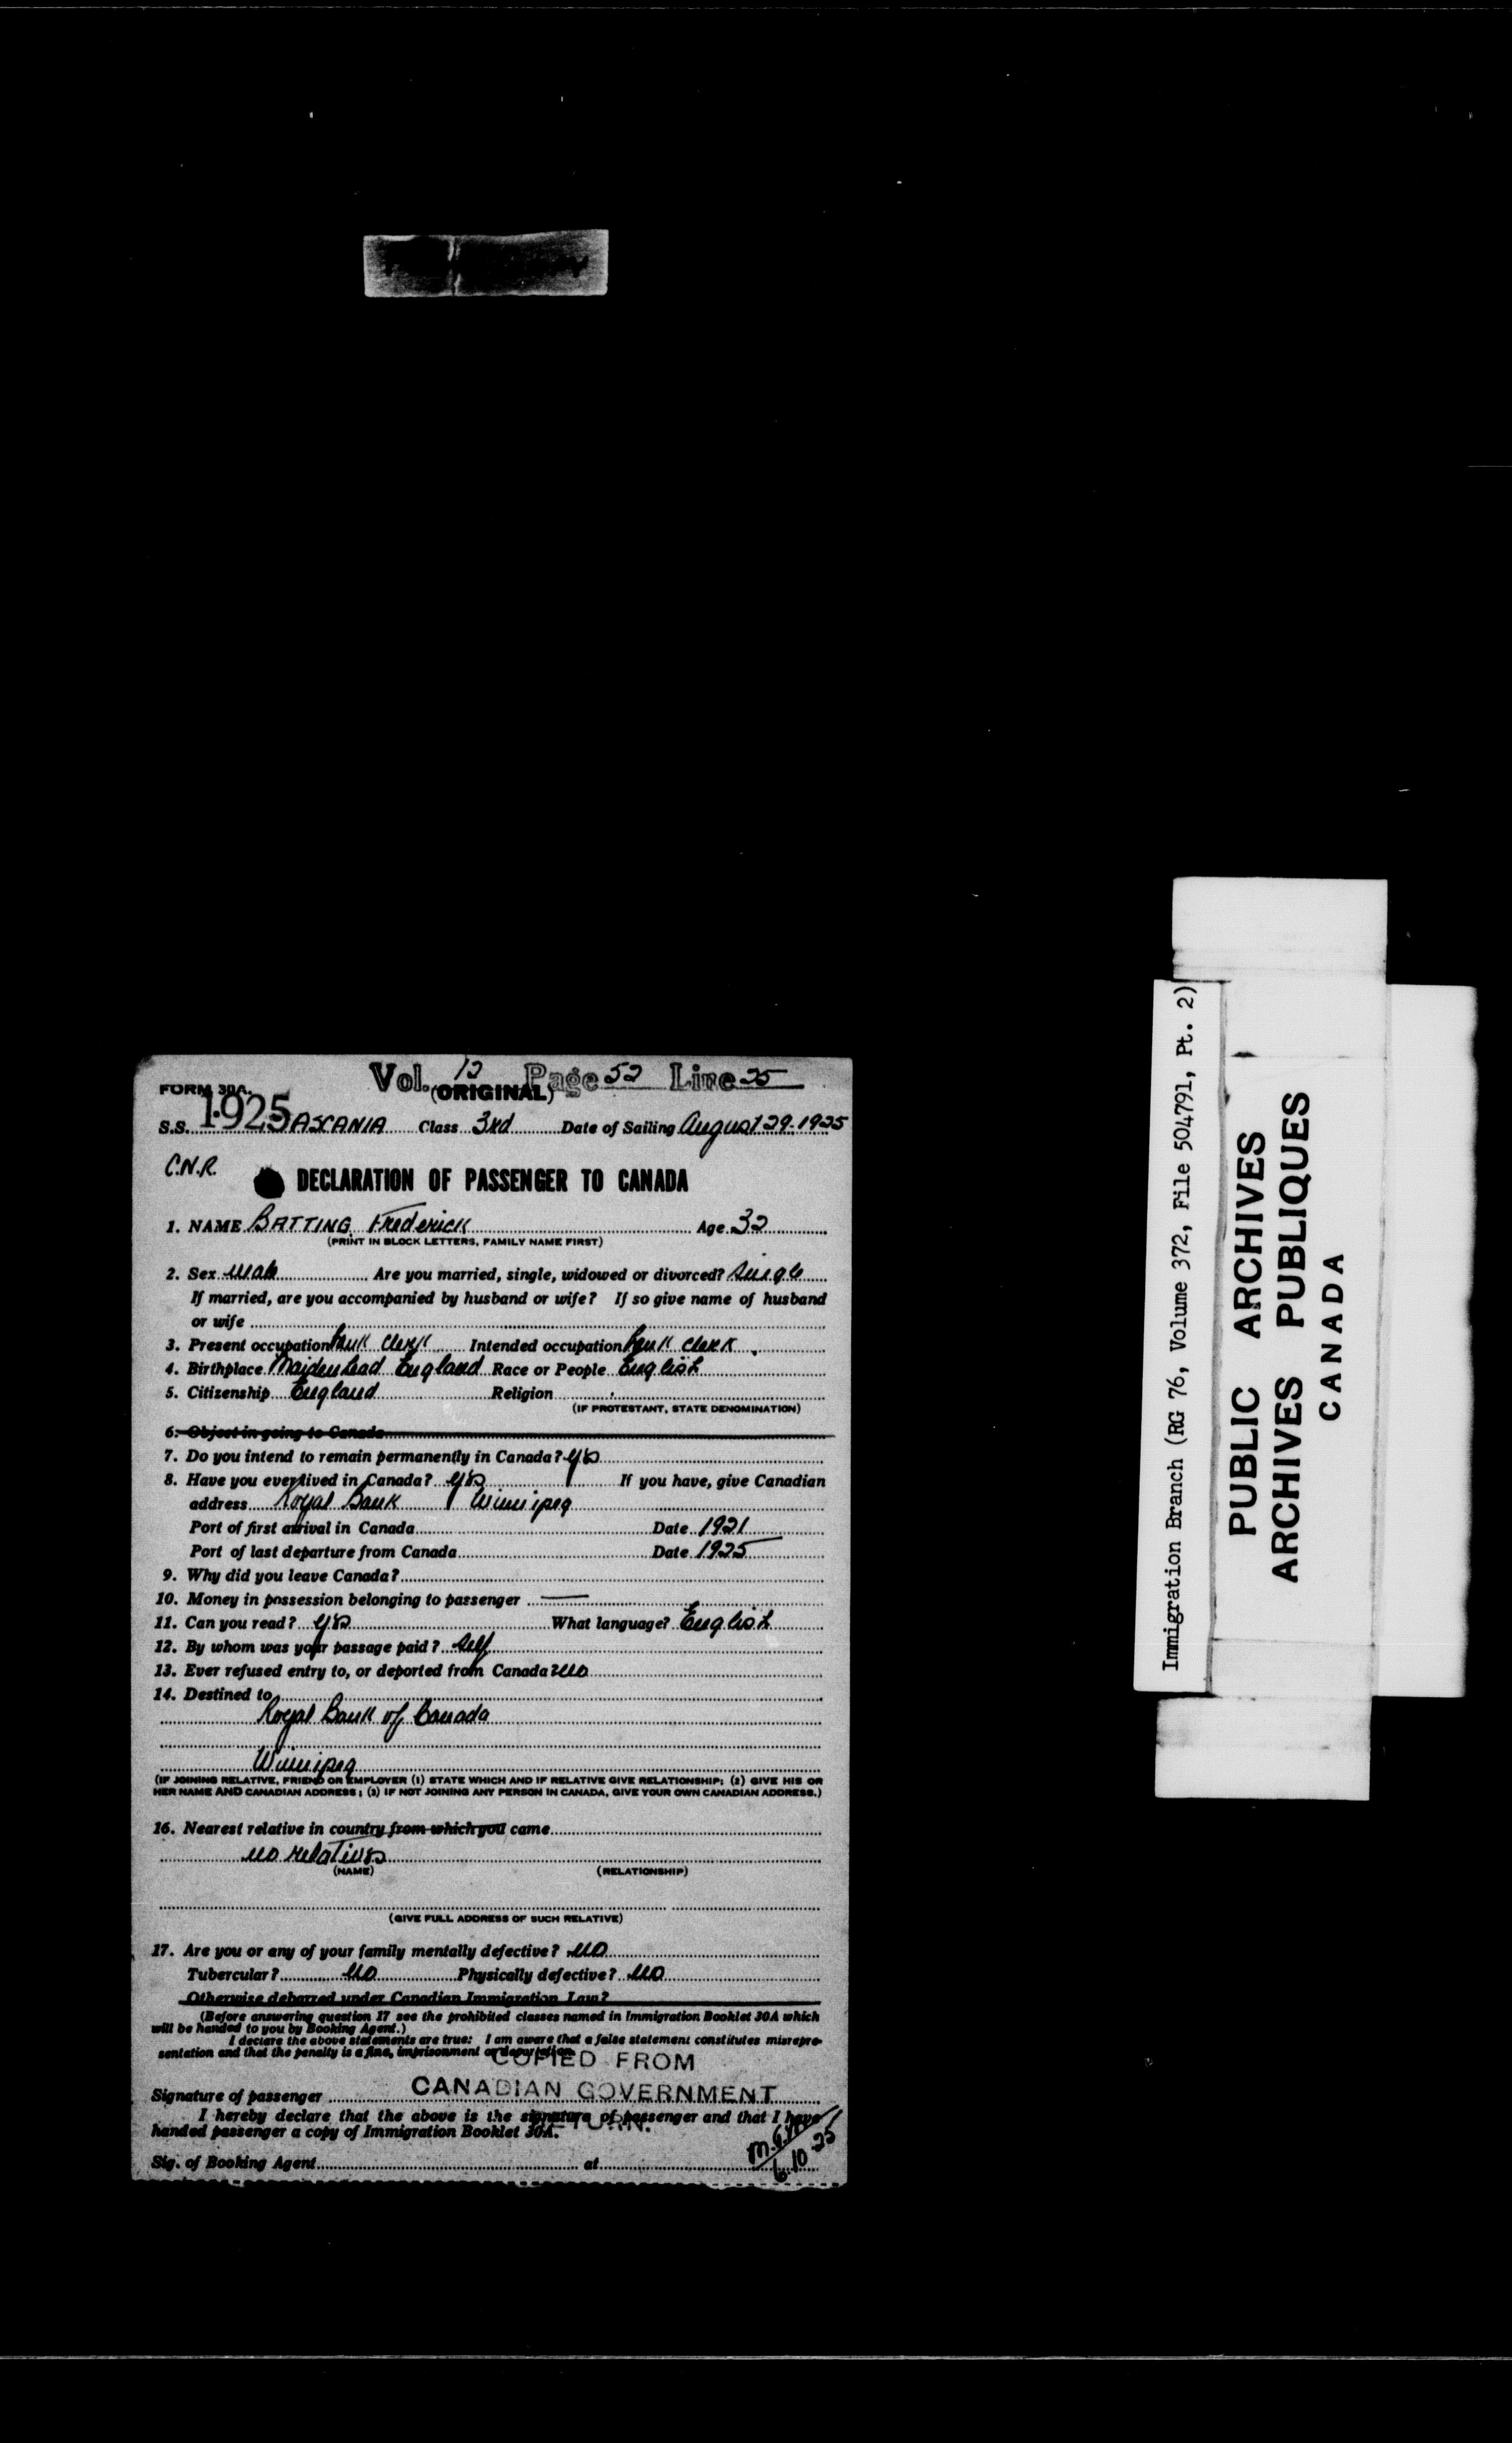 Vol. 12 Page 52 Line 25
FORM 30A. (ORIGINAL)
1925
S.S. ASCANIA Class 3rd Date of Sailing August 29. 1925
C.N.R.
DECLARATION OF PASSENGER TO CANADA
1. NAME BATTING Frederick Age 32
(PRINT IN BLOCK LETTERS, FAMILY NAME FIRST)
2. Sex male Are you married, single, widowed or divorced? Single
If married, are you accompanied by husband or wife? If so give name of husband
or wife
3. Present occupation bank clerk Intended occupation bank clerk
4. Birthplace Maidenhead England Race or People English
5. Citizenship England Religion
(IF PROTESTANT, STATE DENOMINATION)
6. Object in going to Canada
7. Do you intend to remain permanently in Canada? yes
8. Have you ever lived in Canada? yes If you have, give Canadian
address Royal Bank Winnipeg
Port of first arrival in Canada Date 1921
Port of last departure from Canada Date 1925
9. Why did you leave Canada?
10. Money in possession belonging to passenger —
11. Can you read? yes What language? English
12. By whom was your passage paid? Self
13. Ever refused entry to, or deported from Canada? no
14. Destined to
Royal Bank of Canada
Winnipeg
(IF JOINING RELATIVE, FRIEND OR EMPLOYER (1) STATE WHICH AND IF RELATIVE GIVE RELATIONSHIP; (2) GIVE HIS OR
HER NAME AND CANADIAN ADDRESS; (3) IF NOT JOINING ANY PERSON IN CANADA, GIVE YOUR OWN CANADIAN ADDRESS.)
16. Nearest relative in country from which you came
no relatives
(NAME) (RELATIONSHIP)
(GIVE FULL ADDRESS OF SUCH RELATIVE)
17. Are you or any of your family mentally defective? no
Tubercular? no Physically defective? no
Otherwise debarred under Canadian Immigration Law?
(Before answering question 17 see the prohibited classes named in Immigration Booklet 30A which
will be handed to you by Booking Agent.)
I declare the above statements are true: I am aware that a false statement constitutes misrepre-
sentation and that the penalty is a fine, imprisonment or deportation.
COPIED FROM
CANADIAN GOVERNMENT
RETURN.
Signature of passenger
I hereby declare that the above is the signature of passenger and that I have
handed passenger a copy of Immigration Booklet 30A.
6.10 25
Sig. of Booking Agent at
Immigration Branch (RG 76, Volume 372, File 504791, Pt. 2)
PUBLIC ARCHIVES
ARCHIVES PUBLIQUES
CANADA